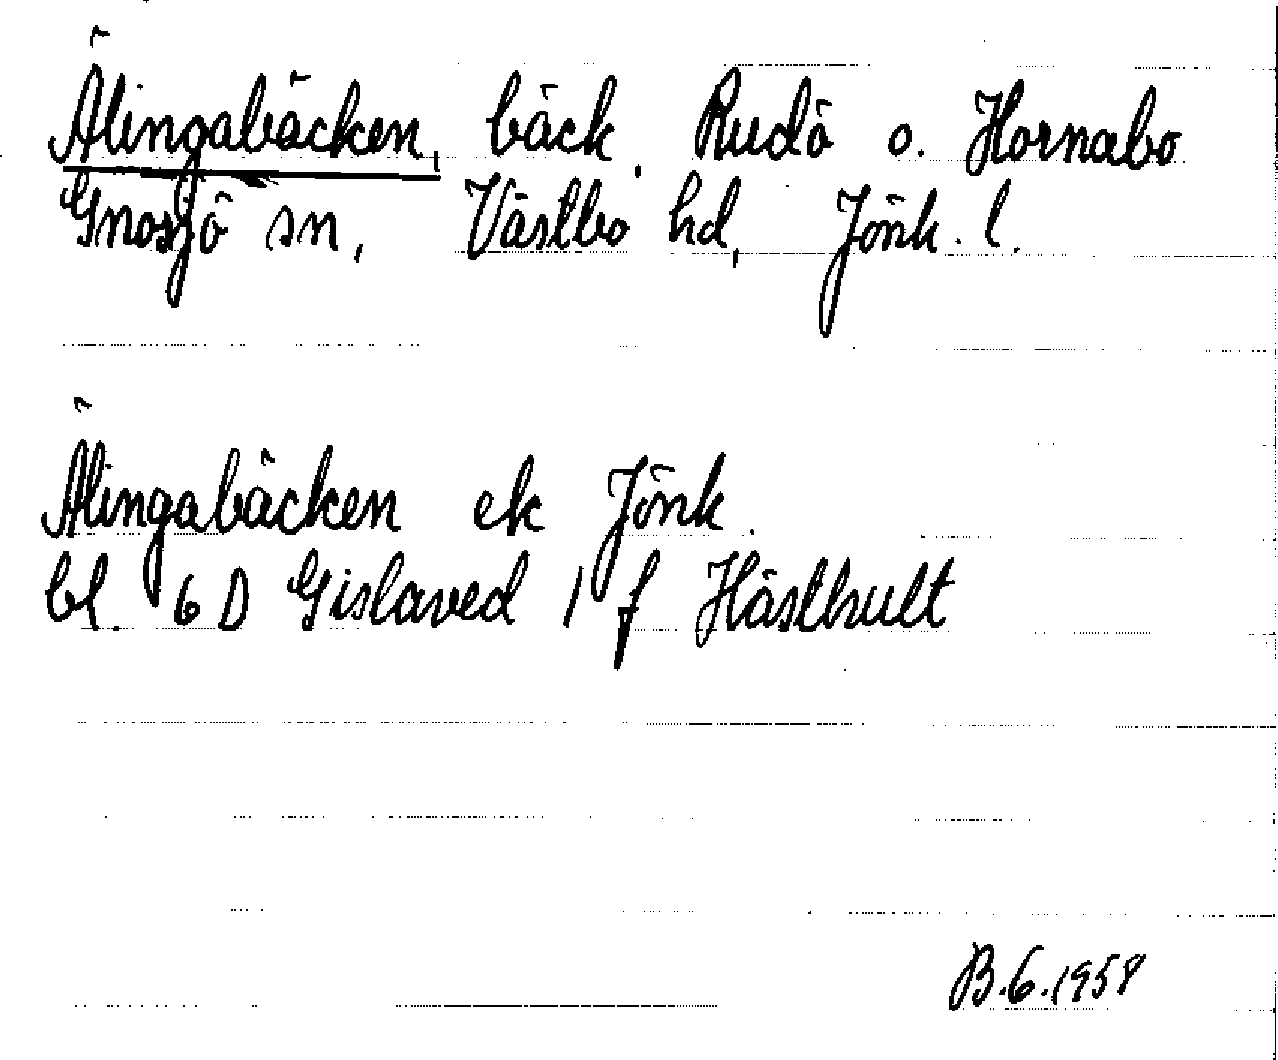 Älingabäcken, bäck. Rudö o. Hornabo
Gnosjö sn, Västbo hd, Jönk. l.
Älingabäcken ek Jönk.
bl. 6 D Gislaved 1 f Hästhult
B.6.1958